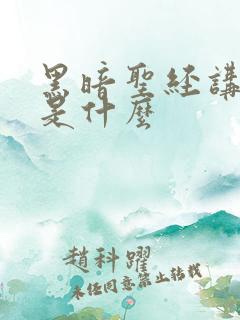 黑暗聖經講
是什麼
趙科躍
未经同意禁止转载